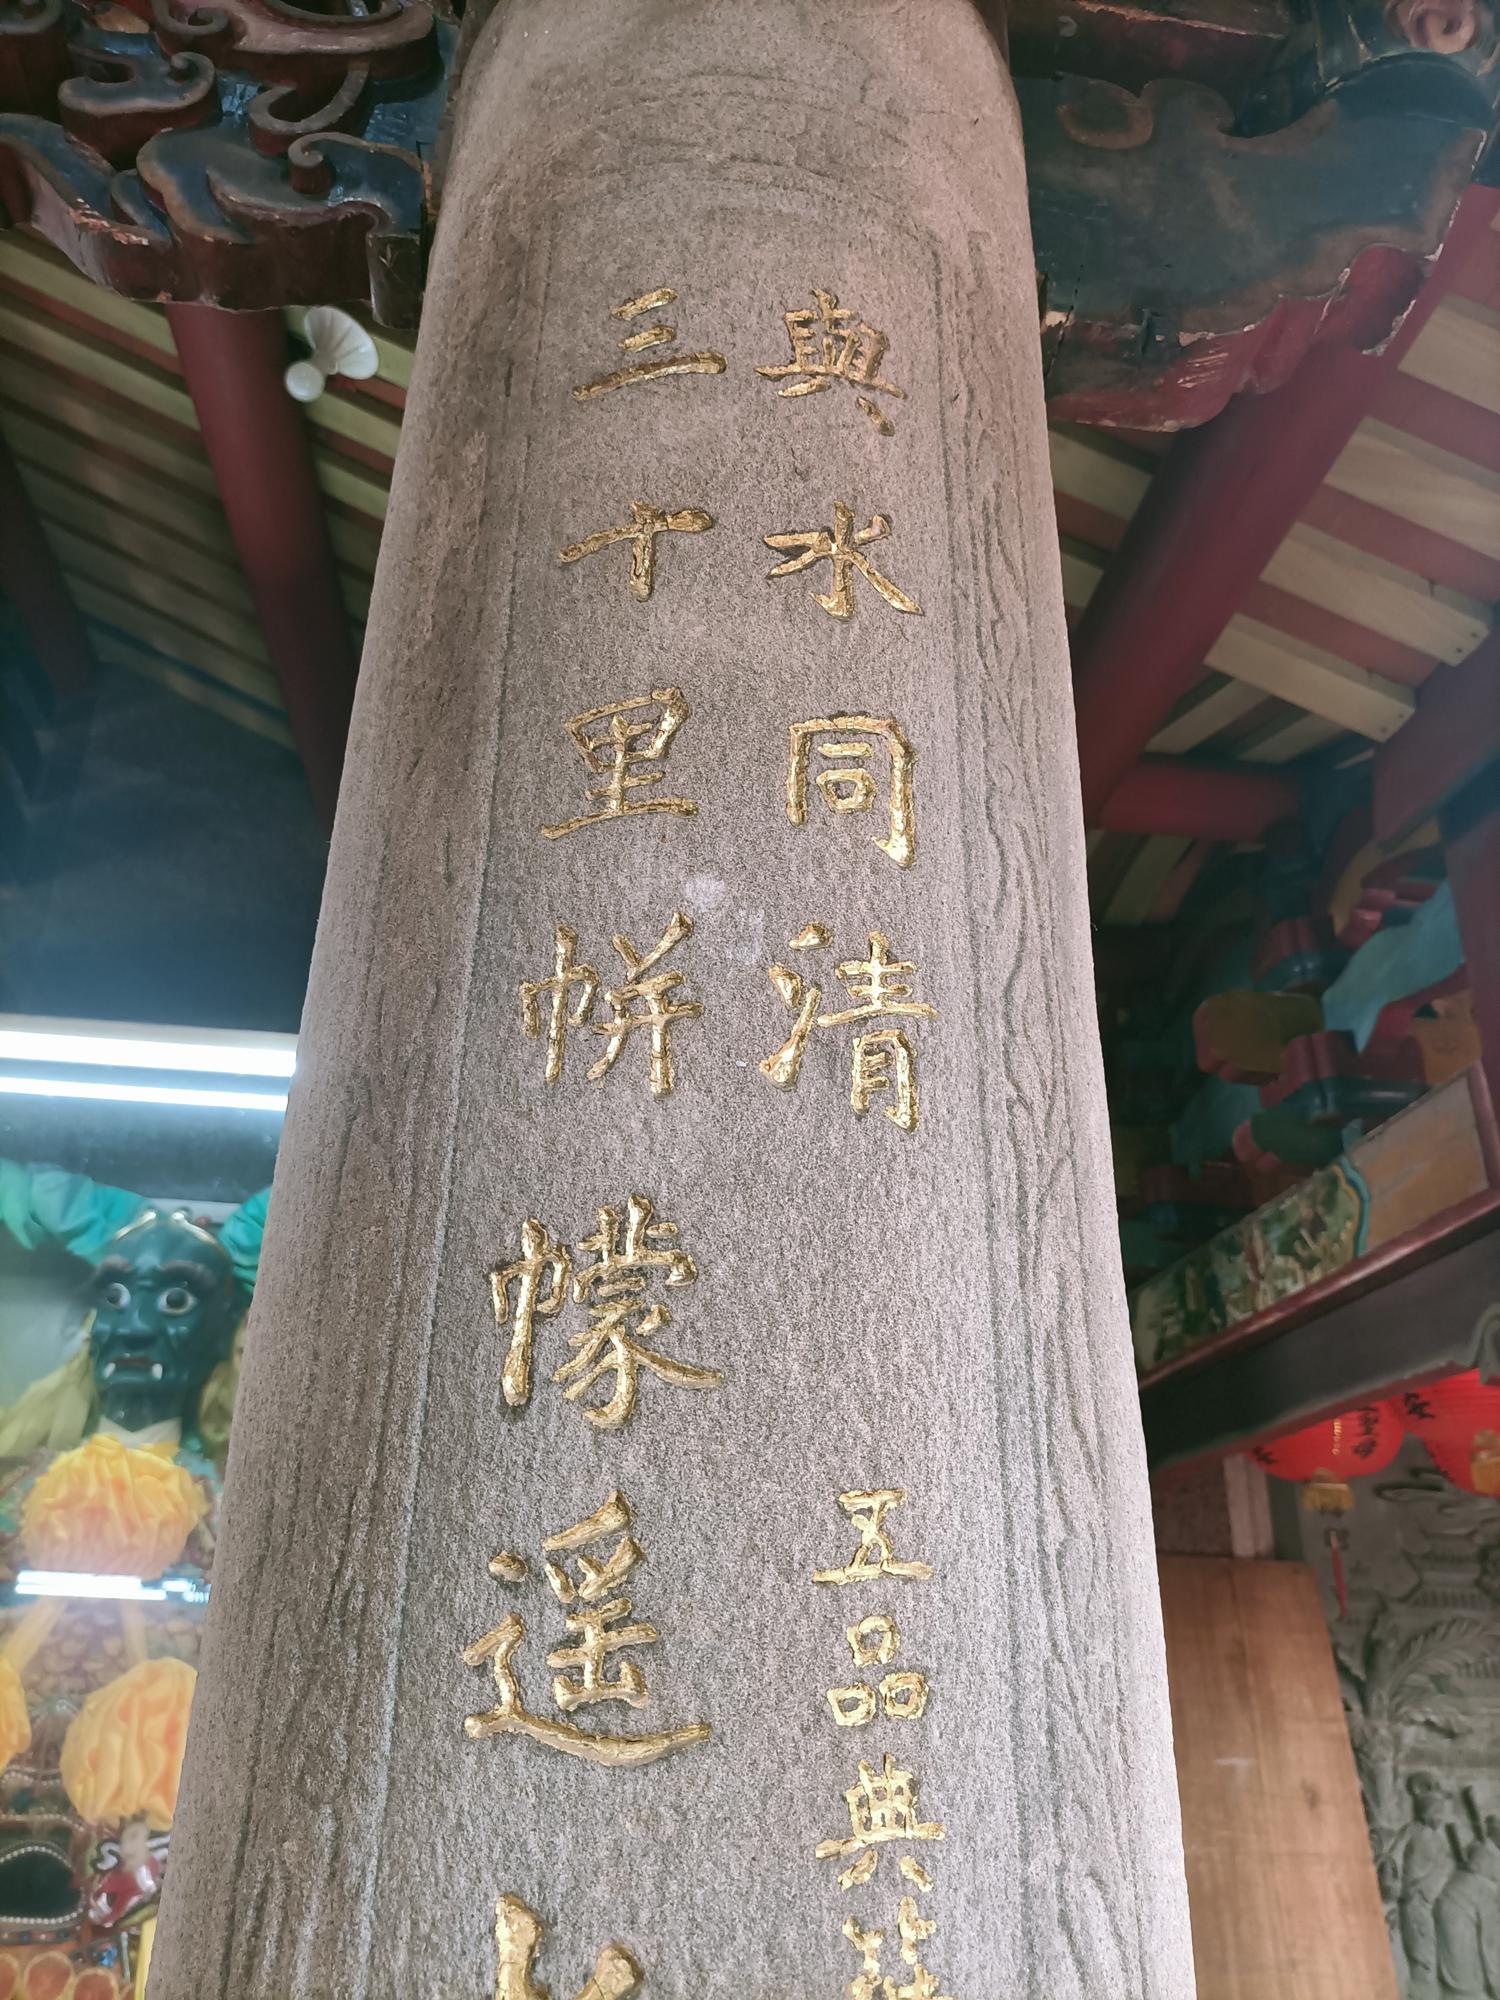 三十里帡幪遙
與水同清
五品典